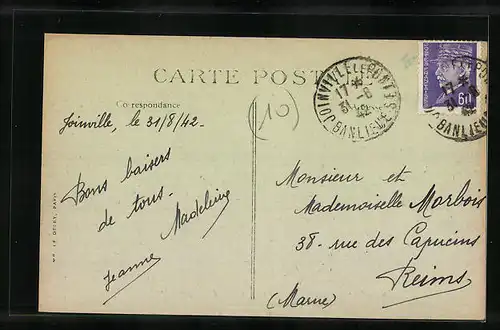 CARTE POST
Correspondance
(10)
Joinville, le 31/8/42-
Bons baisers
de tous.
Madeleine
Jeanne
Monsieur et
Mademoiselle Marbois
38- rue des Capucins
Reims
(Marne)
JOINVILLE LE PONT
17 *
31-8
42
BANLIEUE
17 *
31-8
42
BANLIEUE